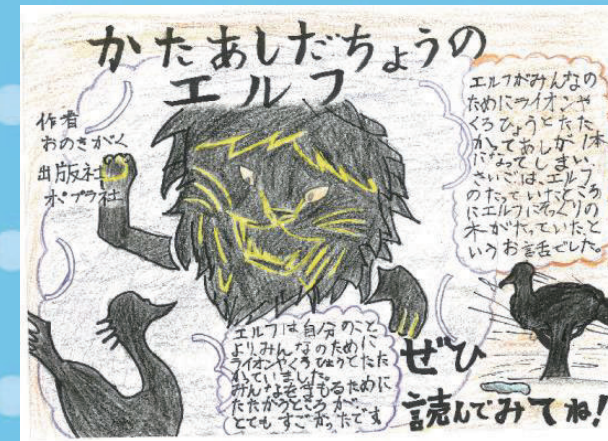 かたあしだちょうの
エルフ
作者
おのきがく
出版社
ポプラ社
エルフがみんなの
ためにライオンや
くろひょうとたた
かってあしが1本
になってしまい、
さいごは、エルフ
のたっていたところ
にエルフにそっくりの
木がたっていたと
いうお話でした。
エルフは自分のこと
よりみんなのために
ライオンやくろひょうとたた
かっていました。
みんなをまもるために
たたかうところが
とてもすごかったです
ぜひ
読んでみてね!